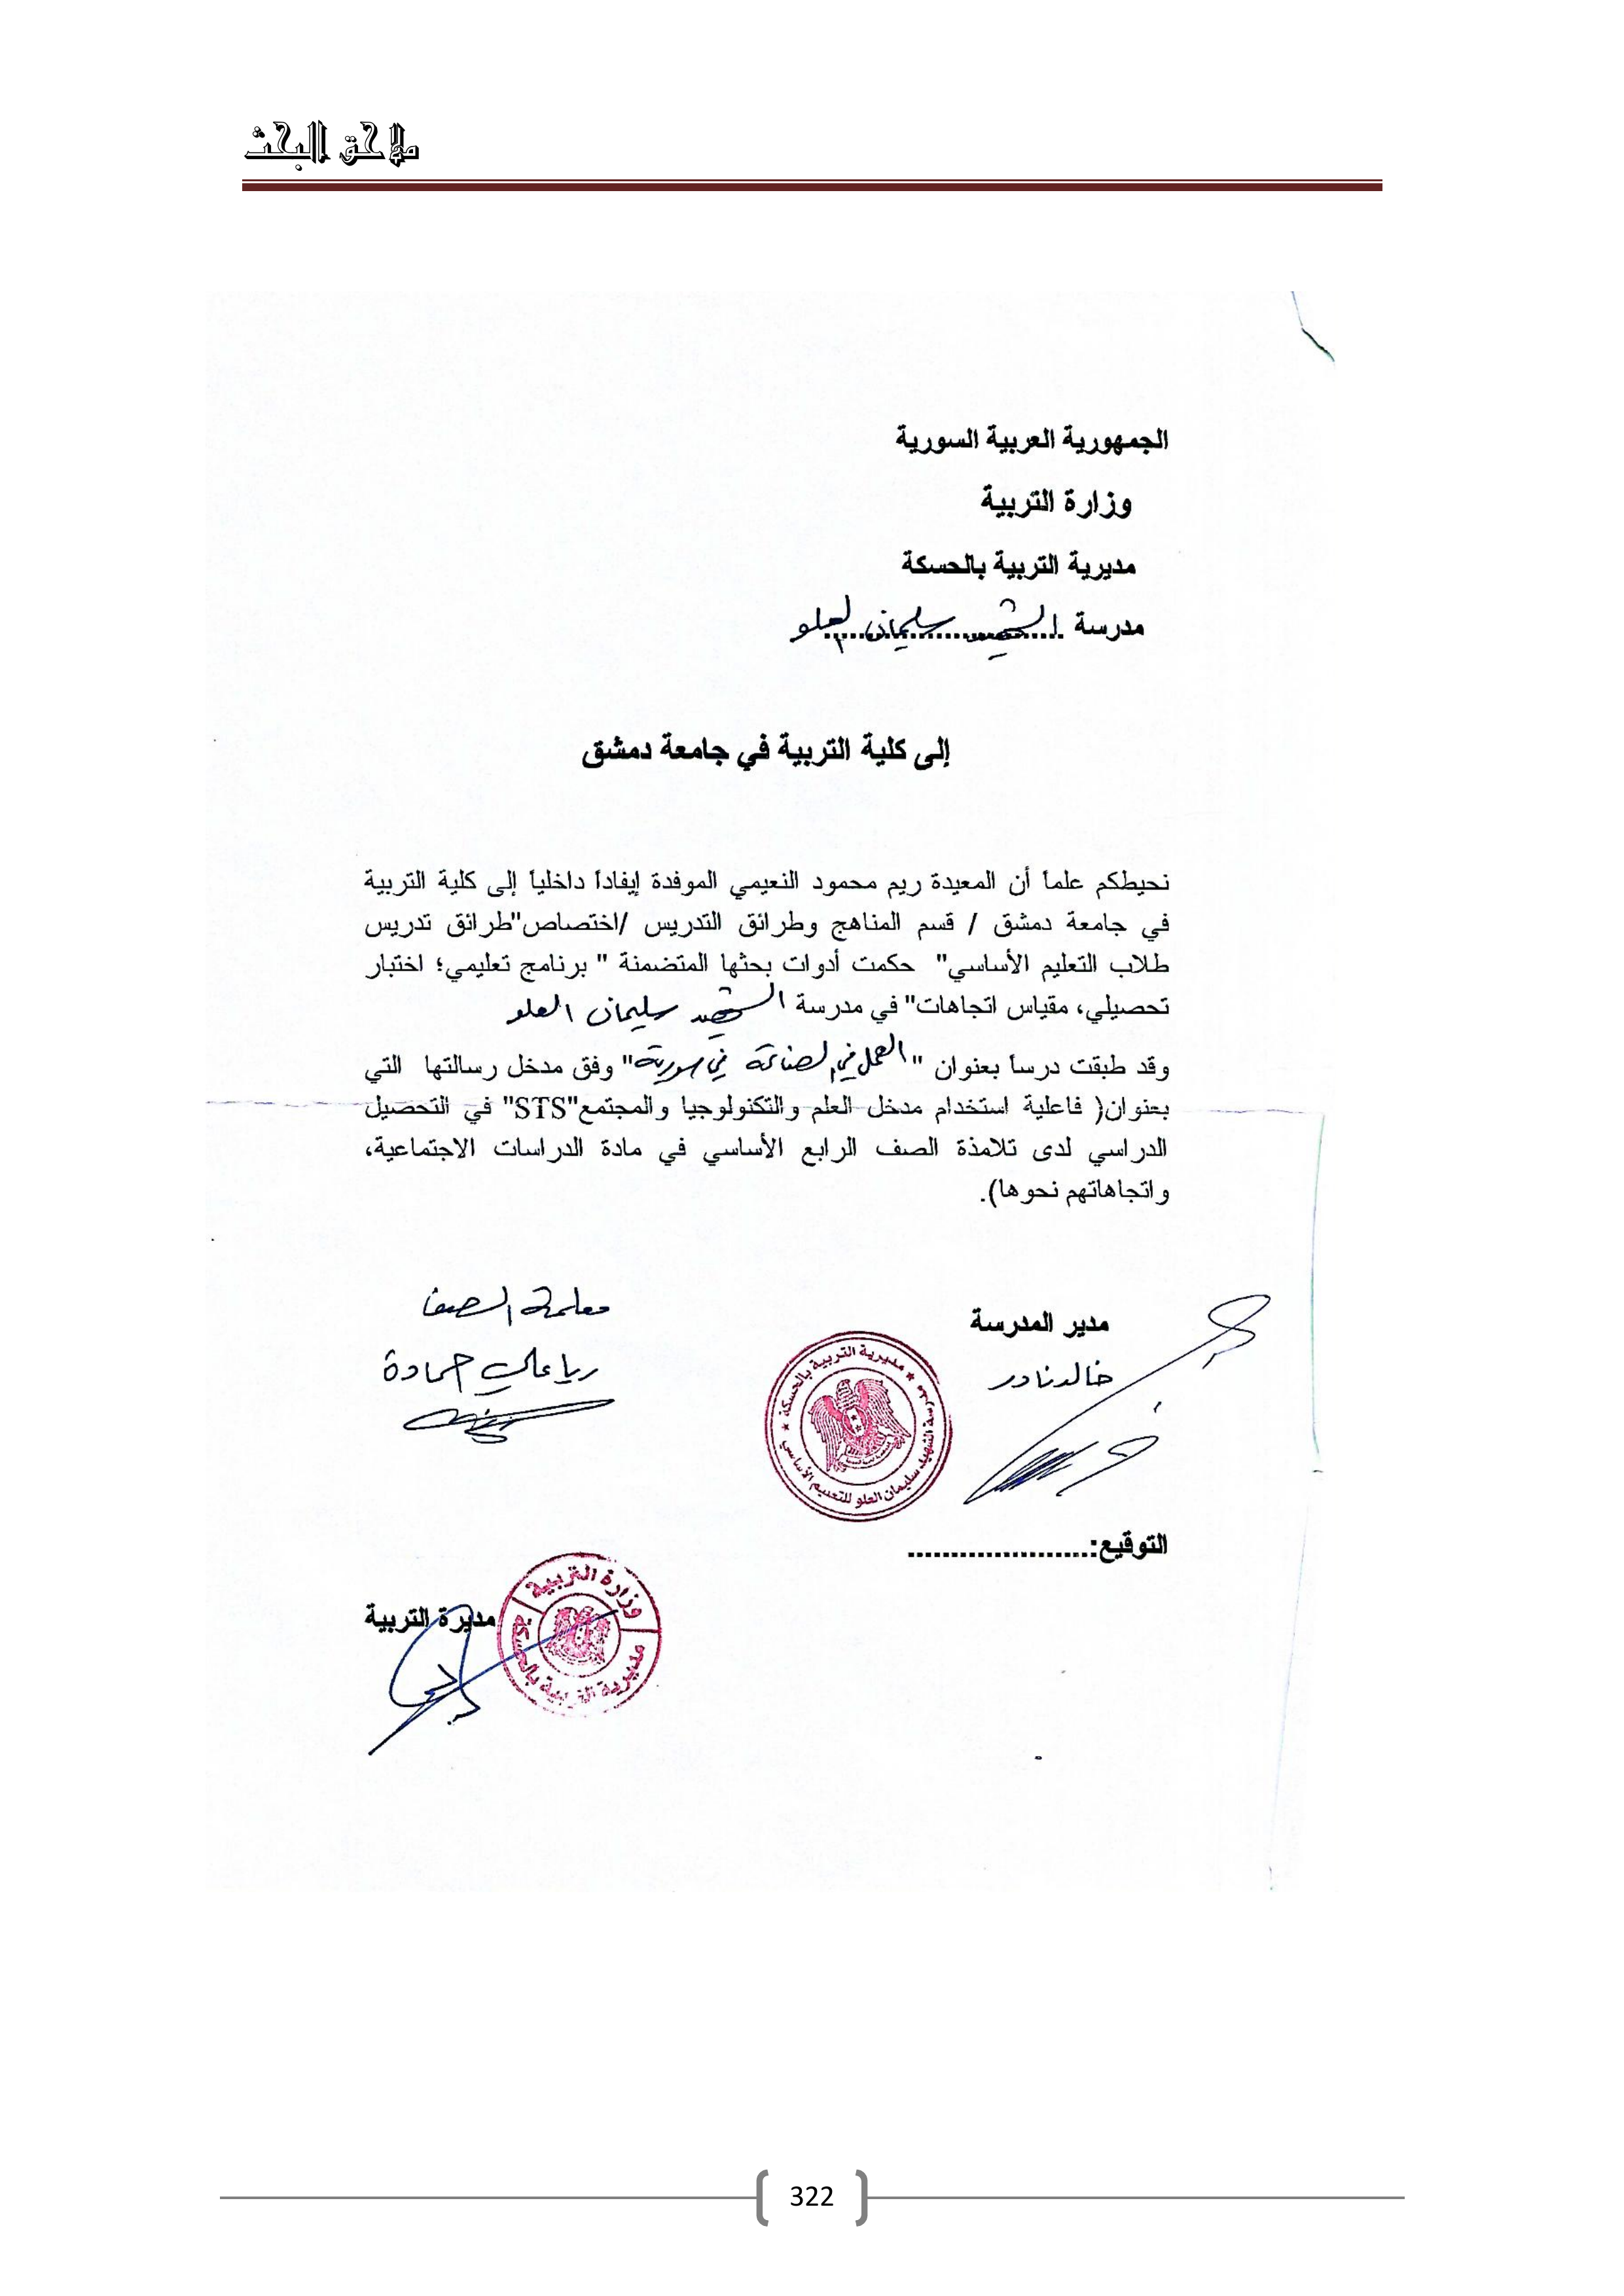 ملاحق البحث
الجمهورية العربية السورية
وزارة التربية
مديرية التربية بالحسكة
مدرسة الشهيد سليمان العلو
إلى كلية التربية في جامعة دمشق
نحيطكم علماً أن المعيدة ريم محمود النعيمي الموفدة إيفاداً داخلياً إلى كلية التربية
في جامعة دمشق / قسم المناهج وطرائق التدريس /اختصاص"طرائق تدريس
طلاب التعليم الأساسي" حكمت أدوات بحثها المتضمنة " برنامج تعليمي؛ اختبار
تحصيلي، مقياس اتجاهات" في مدرسة الشهيد سليمان العلو
وقد طبقت درساً بعنوان "العمل في الصناعة في سورية" وفق مدخل رسالتها التي
بعنوان( فاعلية استخدام مدخل العلم والتكنولوجيا والمجتمع"STS" في التحصيل
الدراسي لدى تلامذة الصف الرابع الأساسي في مادة الدراسات الاجتماعية،
واتجاهاتهم نحوها).
مدير المدرسة
خالد نادر
معلمة الصف
ربا علي حمادة
مديرية التربية بالحسكة
مدرسة الشهيد سليمان العلو للتعليم الأساسي
التوقيع:.....................
مديرة التربية
وزارة التربية
مديرية التربية بالحسكة
322